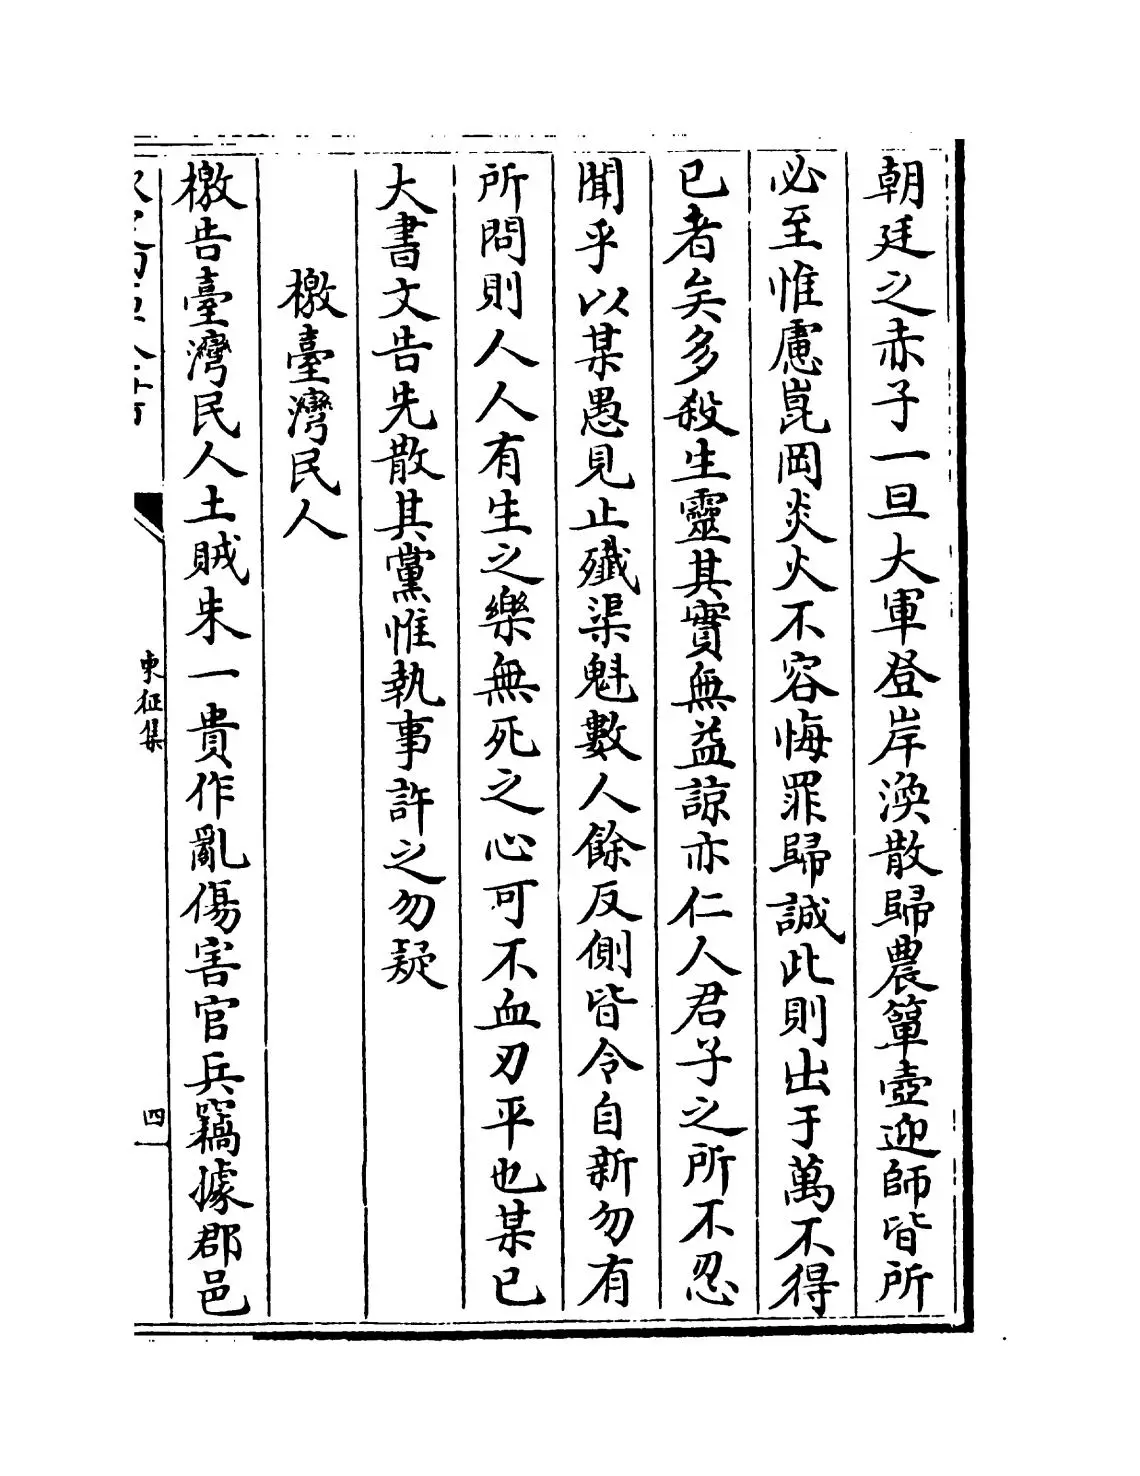 朝廷之赤子一旦大軍登岸渙散歸農簞壺迎師皆所
必至惟慮崑岡炎火不容悔罪歸誠此則出于萬不得
已者矣多殺生靈其實無益諒亦仁人君子之所不忍
聞乎以某愚見止殲渠魁數人餘反側皆令自新勿有
所問則人人有生之樂無死之心可不血刃平也某已
大書文告先散其黨惟執事許之勿疑
檄臺灣民人
檄告臺灣民人土賊朱一貴作亂傷害官兵竊據郡邑
東征集
四